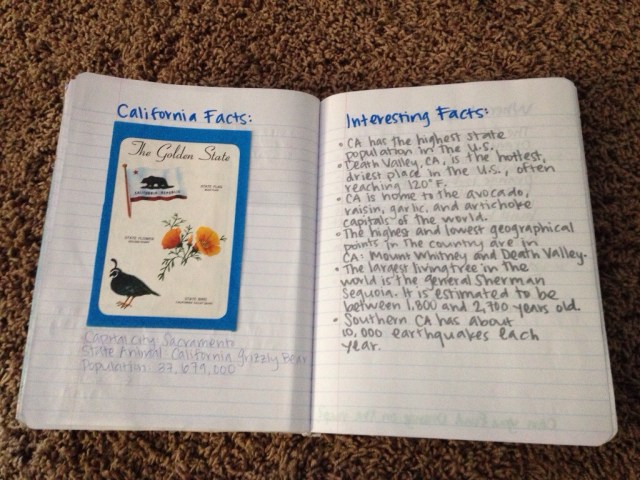 California Facts:
The Golden State
STATE FLAG
CALIFORNIA REPUBLIC
STATE FLOWER
GOLDEN POPPY
STATE BIRD
CALIFORNIA VALLEY QUAIL
Capital city: Sacramento
State Animal: California grizzly Bear
Population: 37,679,000
Interesting Facts:
• CA has the highest state
population in the U.S.
• Death Valley, CA, is the hottest,
driest place in the U.S., often
reaching 120° F.
• CA is home to the avocado,
raisin, garlic, and artichoke
capitals of the world.
• The highes and lowest geographical
points in the country are in
CA: Mount Whitney and Death Valley.
• The largest living tree in the
world is the general Sherman
Sequoia. It is estimated to be
between 1,800 and 2,700 years old.
• Southern CA has about
10,000 earthquakes each
year.